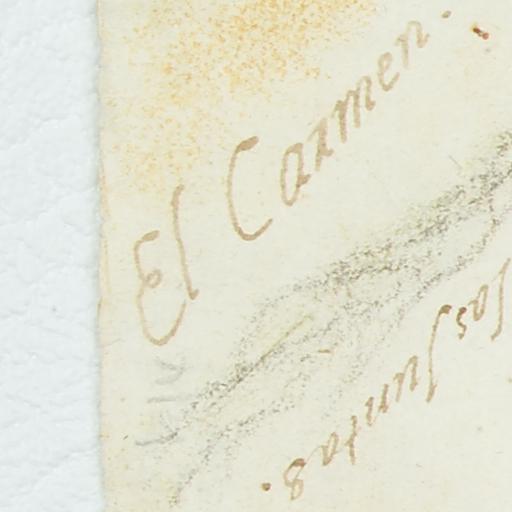 El Carmen.
las Juntas.